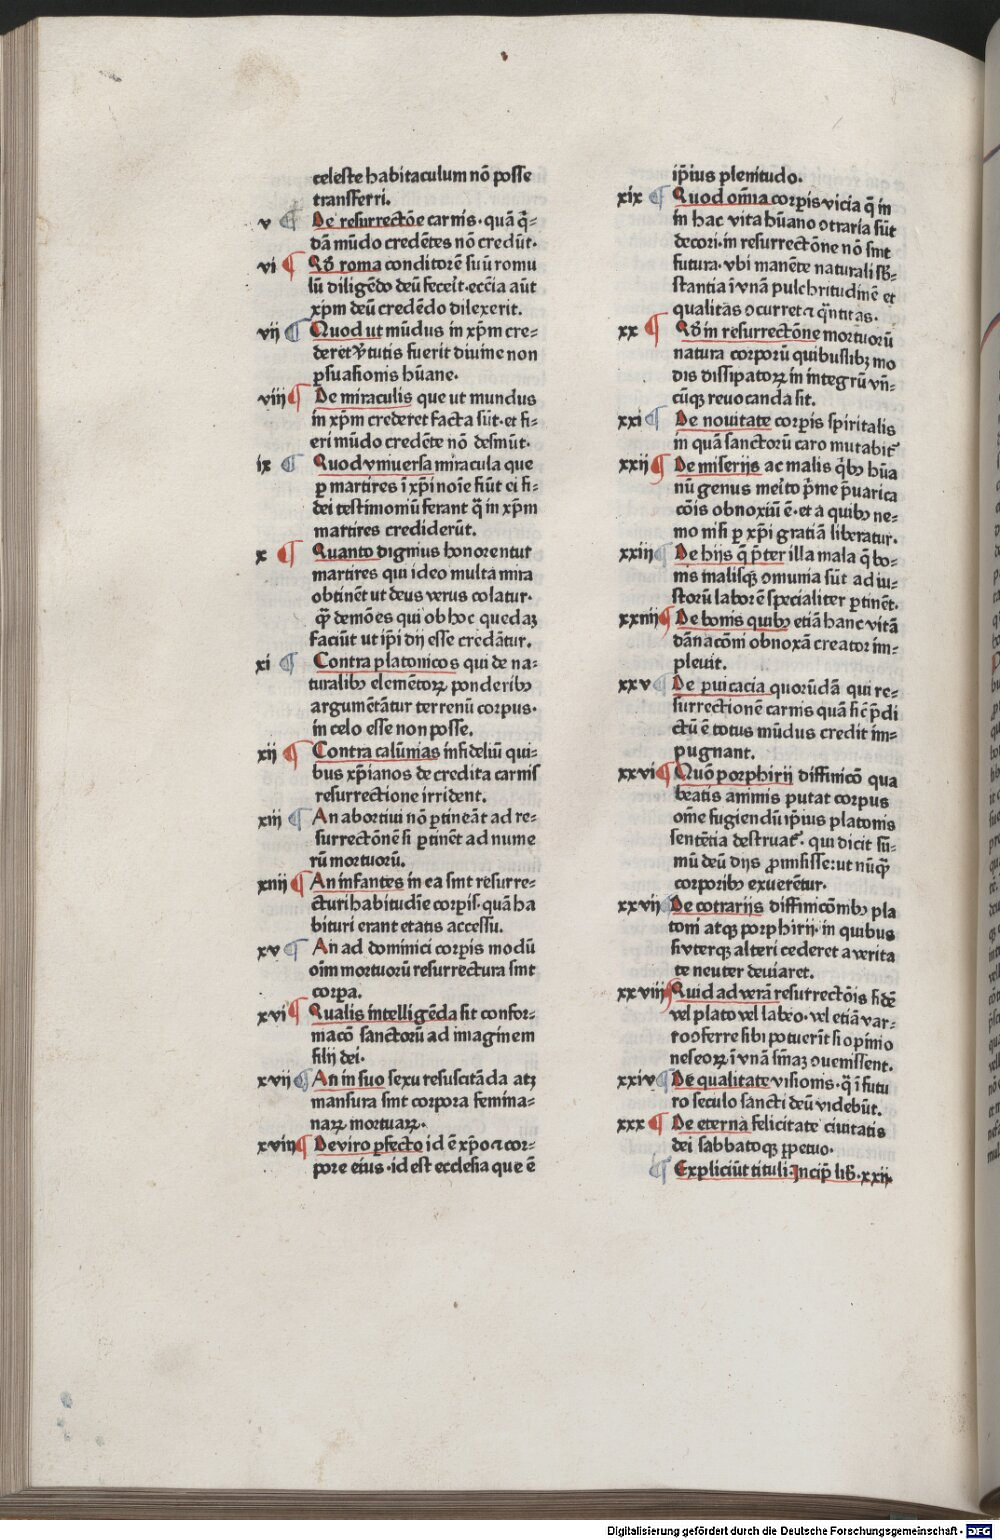 celeste habitaculum nō posse
transferri.
v De resurrectōe carnis. quā q̄-
dā mūdo credētes nō credūt.
vi Qđ roma conditorē suū romu
lū diligēdo deū fecit. ecc̄ia aūt
xp̄m deū credēdo dilexerit.
vii Quod ut mūdus in xp̄m cre-
deret v̄tutis fuerit diuine non
ꝑsuasionis hūane.
viii De miraculis que ut mundus
in xp̄m crederet facta sūt. et fi-
eri mūdo credēte nō desinūt.
ix Quod vniuersa miracula que
ꝑ martires ī xp̄i noīe fiūt ei fi-
dei testimoniū ferant q̄ in xp̄m
martires crediderūt.
x Quanto dignius honorentur
martires qui ideo multa mira
obtinēt ut deus verus colatur.
q̄ demōes qui ob hoc quedaꝫ
faciūt ut ip̄i dij esse credātur.
xi Contra platonicos qui de na-
turalibꝫ elemētoꝝ ponderibꝫ
argumētātur terrenū corpus.
in celo esse non posse.
xii Contra calūnias infideliū qui-
bus xp̄ianos de credita carnis
resurrectione irrident.
xiii An abortiui nō ꝑtineāt ad re-
surrectōnē si ꝑtinēt ad nume
rū mortuorū.
xiiii An infantes in ea sint resurre-
cturi habitudīe corꝑis. quā ha
bituri erant etatis accessu.
xv An ad dominici corꝑis modū
oīm mortuorū resurrectura sint
corꝑa.
xvi Qualis intelligēda sit confor-
macō sanctorū ad imaginem
filij dei.
xvii An in suo sexu resuscitāda atꝫ
mansura sint corpora femina-
naꝝ mortuaꝝ.
xviii De viro ꝑfecto id ē xp̄o ⁊ cor-
pore eius. id est ecclesia que ē
ip̄ius plenitudo.
xix Quod om̄ia corꝑis vicia q̄ in
in hac vita hūano ↄtraria sūt
decori. in resurrectōne nō sint
futura. vbi manēte naturali sb̄-
stantia ī vnā pulchritudinē et
qualitas ↄcurret ⁊ q̄ntitas.
xx Qđ in resurrectōne mortuorū
natura corporū quibuslibꝫ mo
dis dissipatoꝝ in integrū vn̄-
cūqꝫ reuocanda sit.
xxi De nouitate corꝑis spiritalis
in quā sanctorū caro mutabit᷑
xxii De miserijs ac malis q̄bꝫ hūa
nū genus meīto p̄me p̄uarica
cōis obnoxiū ē. et a quibꝫ ne-
mo nisi ꝑ xp̄i gratiā liberatur.
xxiii De hijs q̄ p̄ter illa mala q̄ bo-
nis malisqꝫ ↄmunia sūt ad iu-
storū laborē specialiter ꝑtinēt.
xxiiii De bonis quibꝫ etiā hanc vitā
dānacōni obnoxā creator im-
pleuit.
xxv De ꝑuicacia quorūdā qui re-
surrectionē carnis quā sic p̄di
ctū ē totus mūdus credit im-
pugnant.
xxvi Quō porphirij diffinicō qua
beatis animis putat corpus
om̄e fugiendū ip̄ius platonis
sentētia destruat᷑. qui dicit sū-
mū deū dijs ꝓmisisse: ut nūq̄
corporibꝫ exuerētur.
xxvii De cōtrarijs diffinicōnibꝫ pla
toni atqꝫ porphirij. in quibus
si vterqꝫ alteri cederet a verita
te neuter deuiaret.
xxviii Quid ad verā resurrectōis fidē
vel plato vel labeo. vel etiā var-
ro ↄferre sibi potuerīt si opinio
nes eoꝝ ī vnā sniāꝫ ↄuenissent.
xxiv De qualitate visionis. q̄ ī futu
ro seculo sancti deū videbūt.
xxx De eterna felicitate ciuitatis
dei sabbatoqꝫ ꝑpetuo.
Expliciūt tituli. Incip̄ lib̄. xxii.
Digitalisierung gefördert durch die Deutsche Forschungsgemeinschaft - DFG